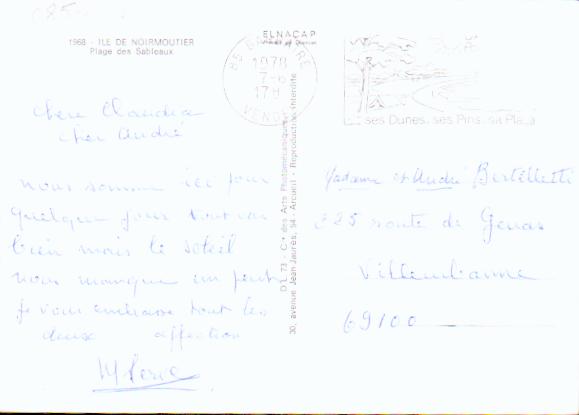 1968 - ILE DE NOIRMOUTIER
Plage des Sableaux
ELNACAP
1978
7-6
17H
VENDÉE
ses Dunes. ses Pins. sa Plage
chere Claudia
cher André
nous somme ici pour
quelque jour tout va
bien mais le soleil
nous manque un peut
je vous embrasse tout les
deux affection
Madame et André Bertelletti
225 route de Genas
Villeurbanne
69100
DL 73 - Cie des Arts Photomécaniques
30, avenue Jean Jaurès, 94 - Arcueil - Reproduction interdite